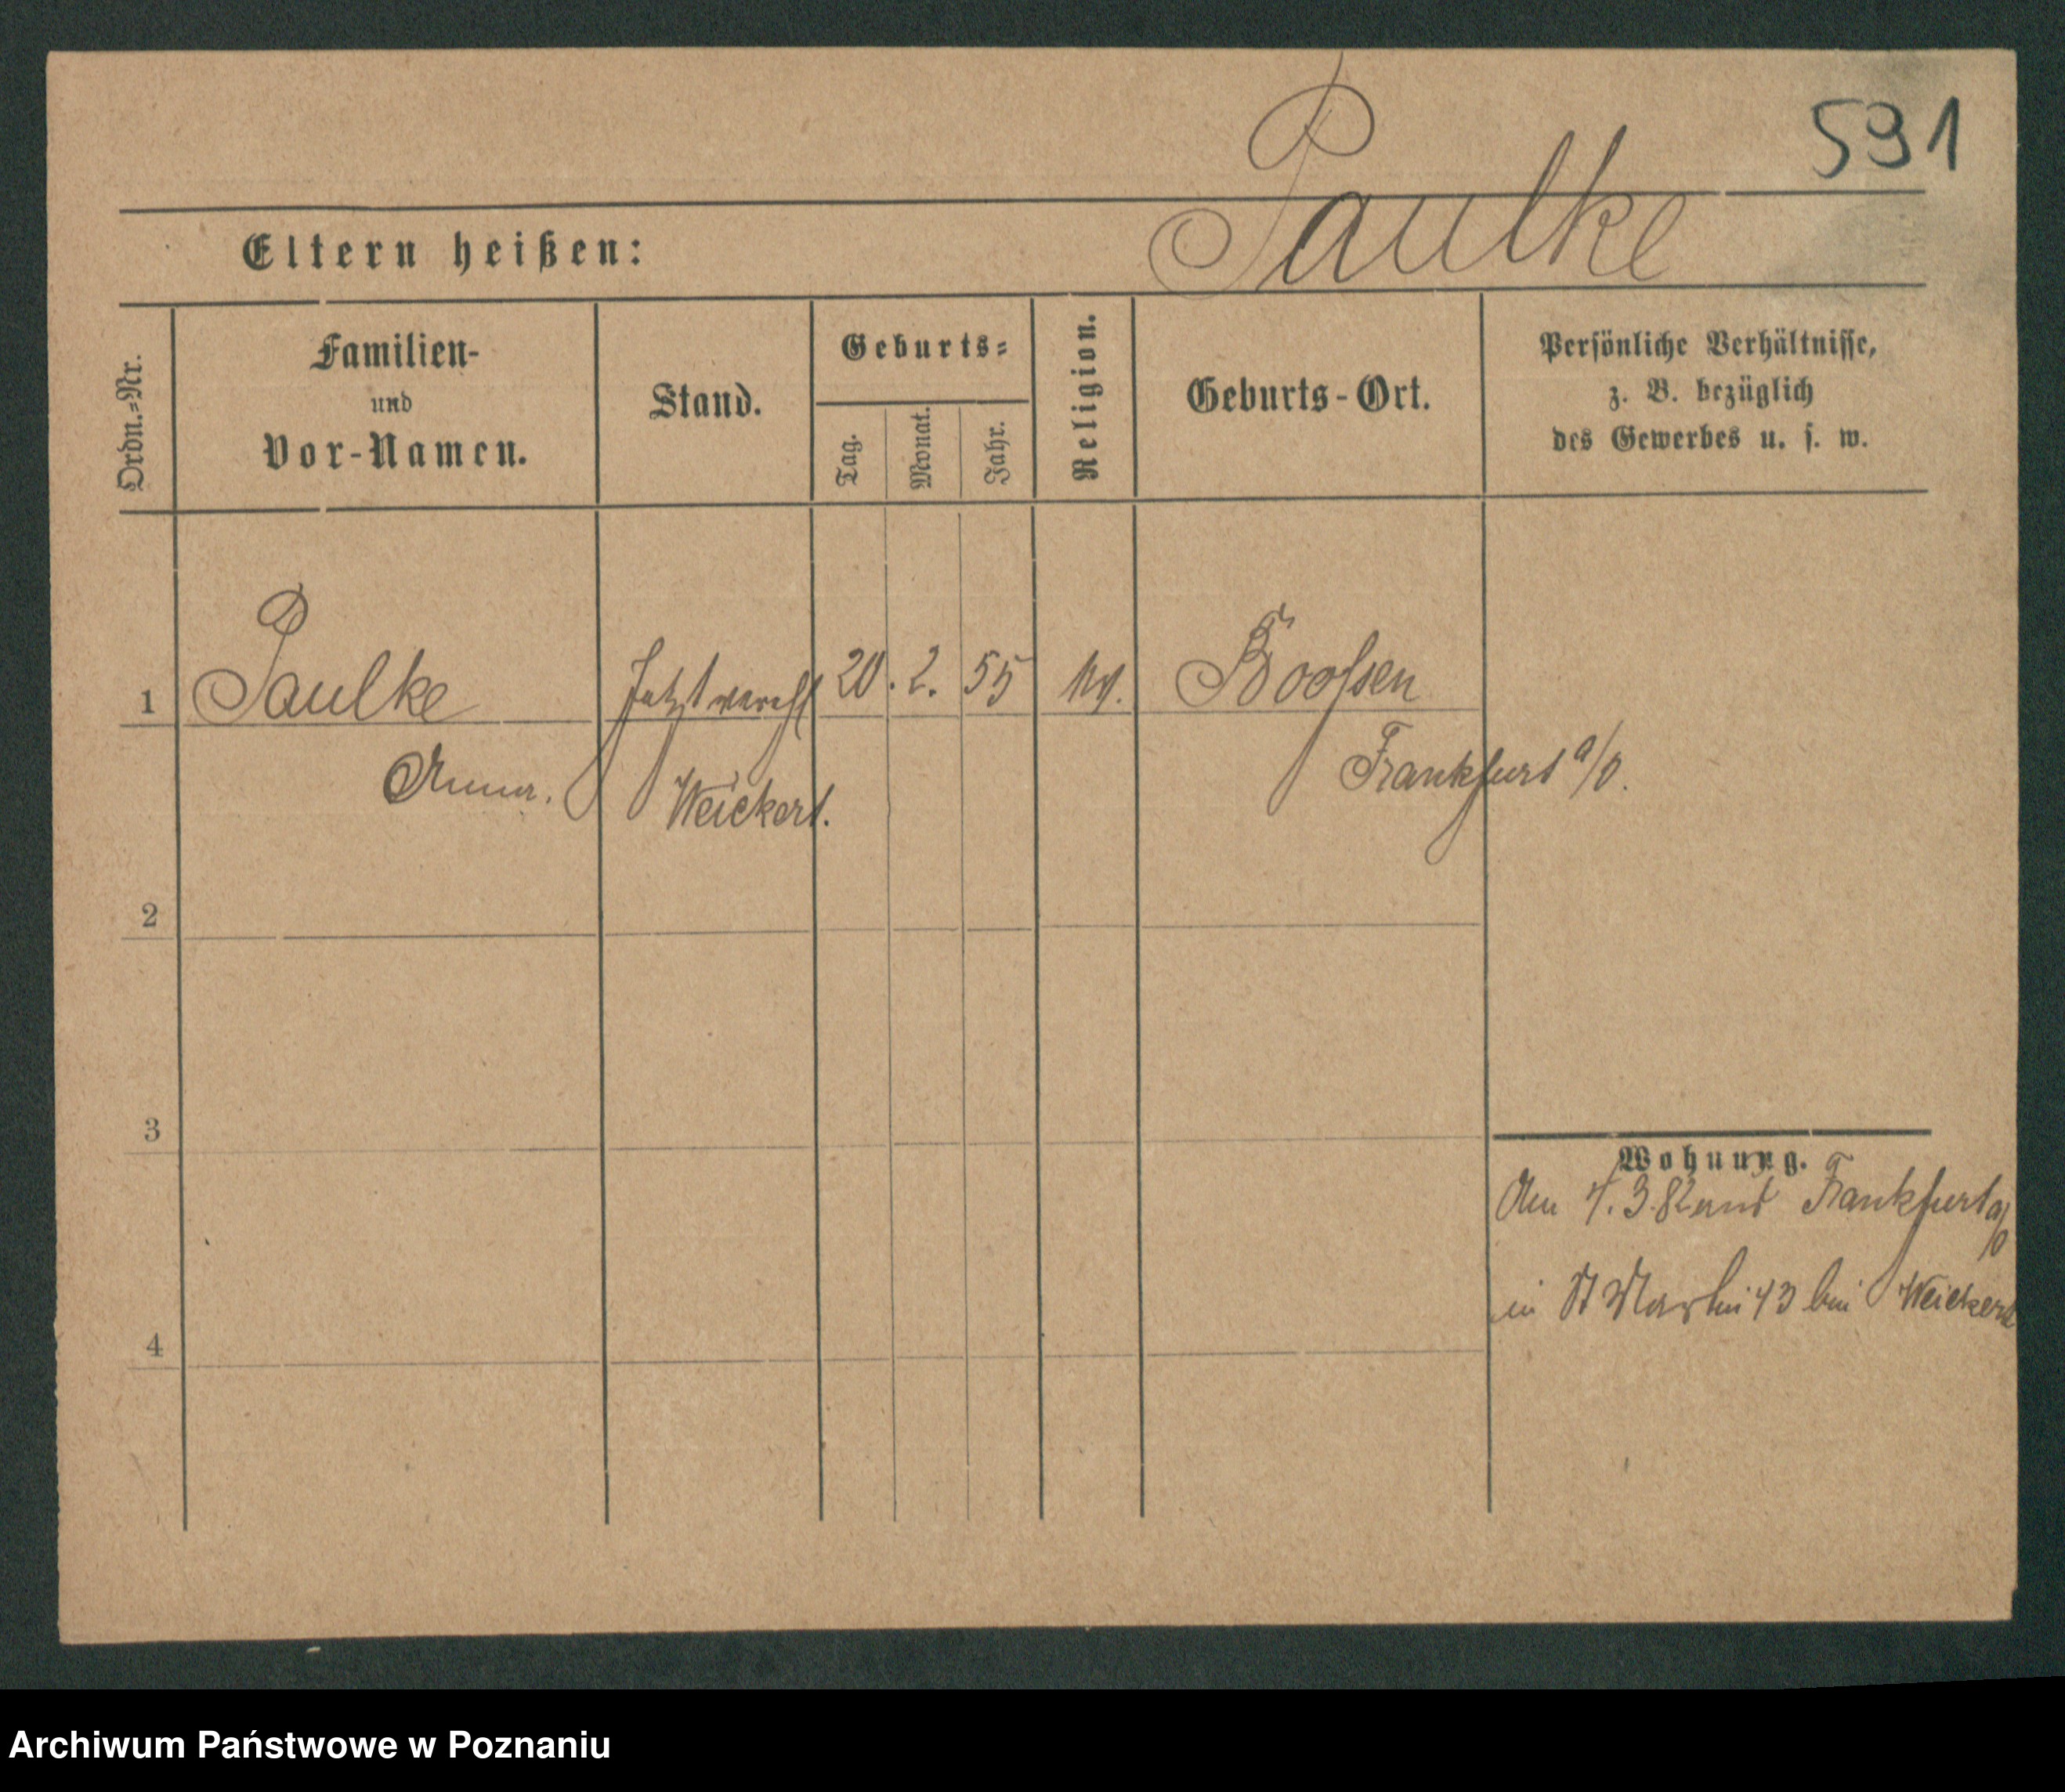 591
Paulke
Eltern heißen:
Ordn.=Nr.
Familien-
und
Vor-Namen.
Stand.
Geburts=
Tag.
Monat.
Jahr.
Religion.
Geburts-Ort.
Persönliche Verhältnisse,
z. B. bezüglich
des Gewerbes u. s. w.
1 Paulke Jetzt verehl 20. 2. 55 Boossen
Anna. Weickert. Frankfurt a/O.
2
3
4
Wohnung.
Am 4.3.82 aus Frankfurt a/O
in St Martin 43 bei Weickert
Archiwum Państwowe w Poznaniu